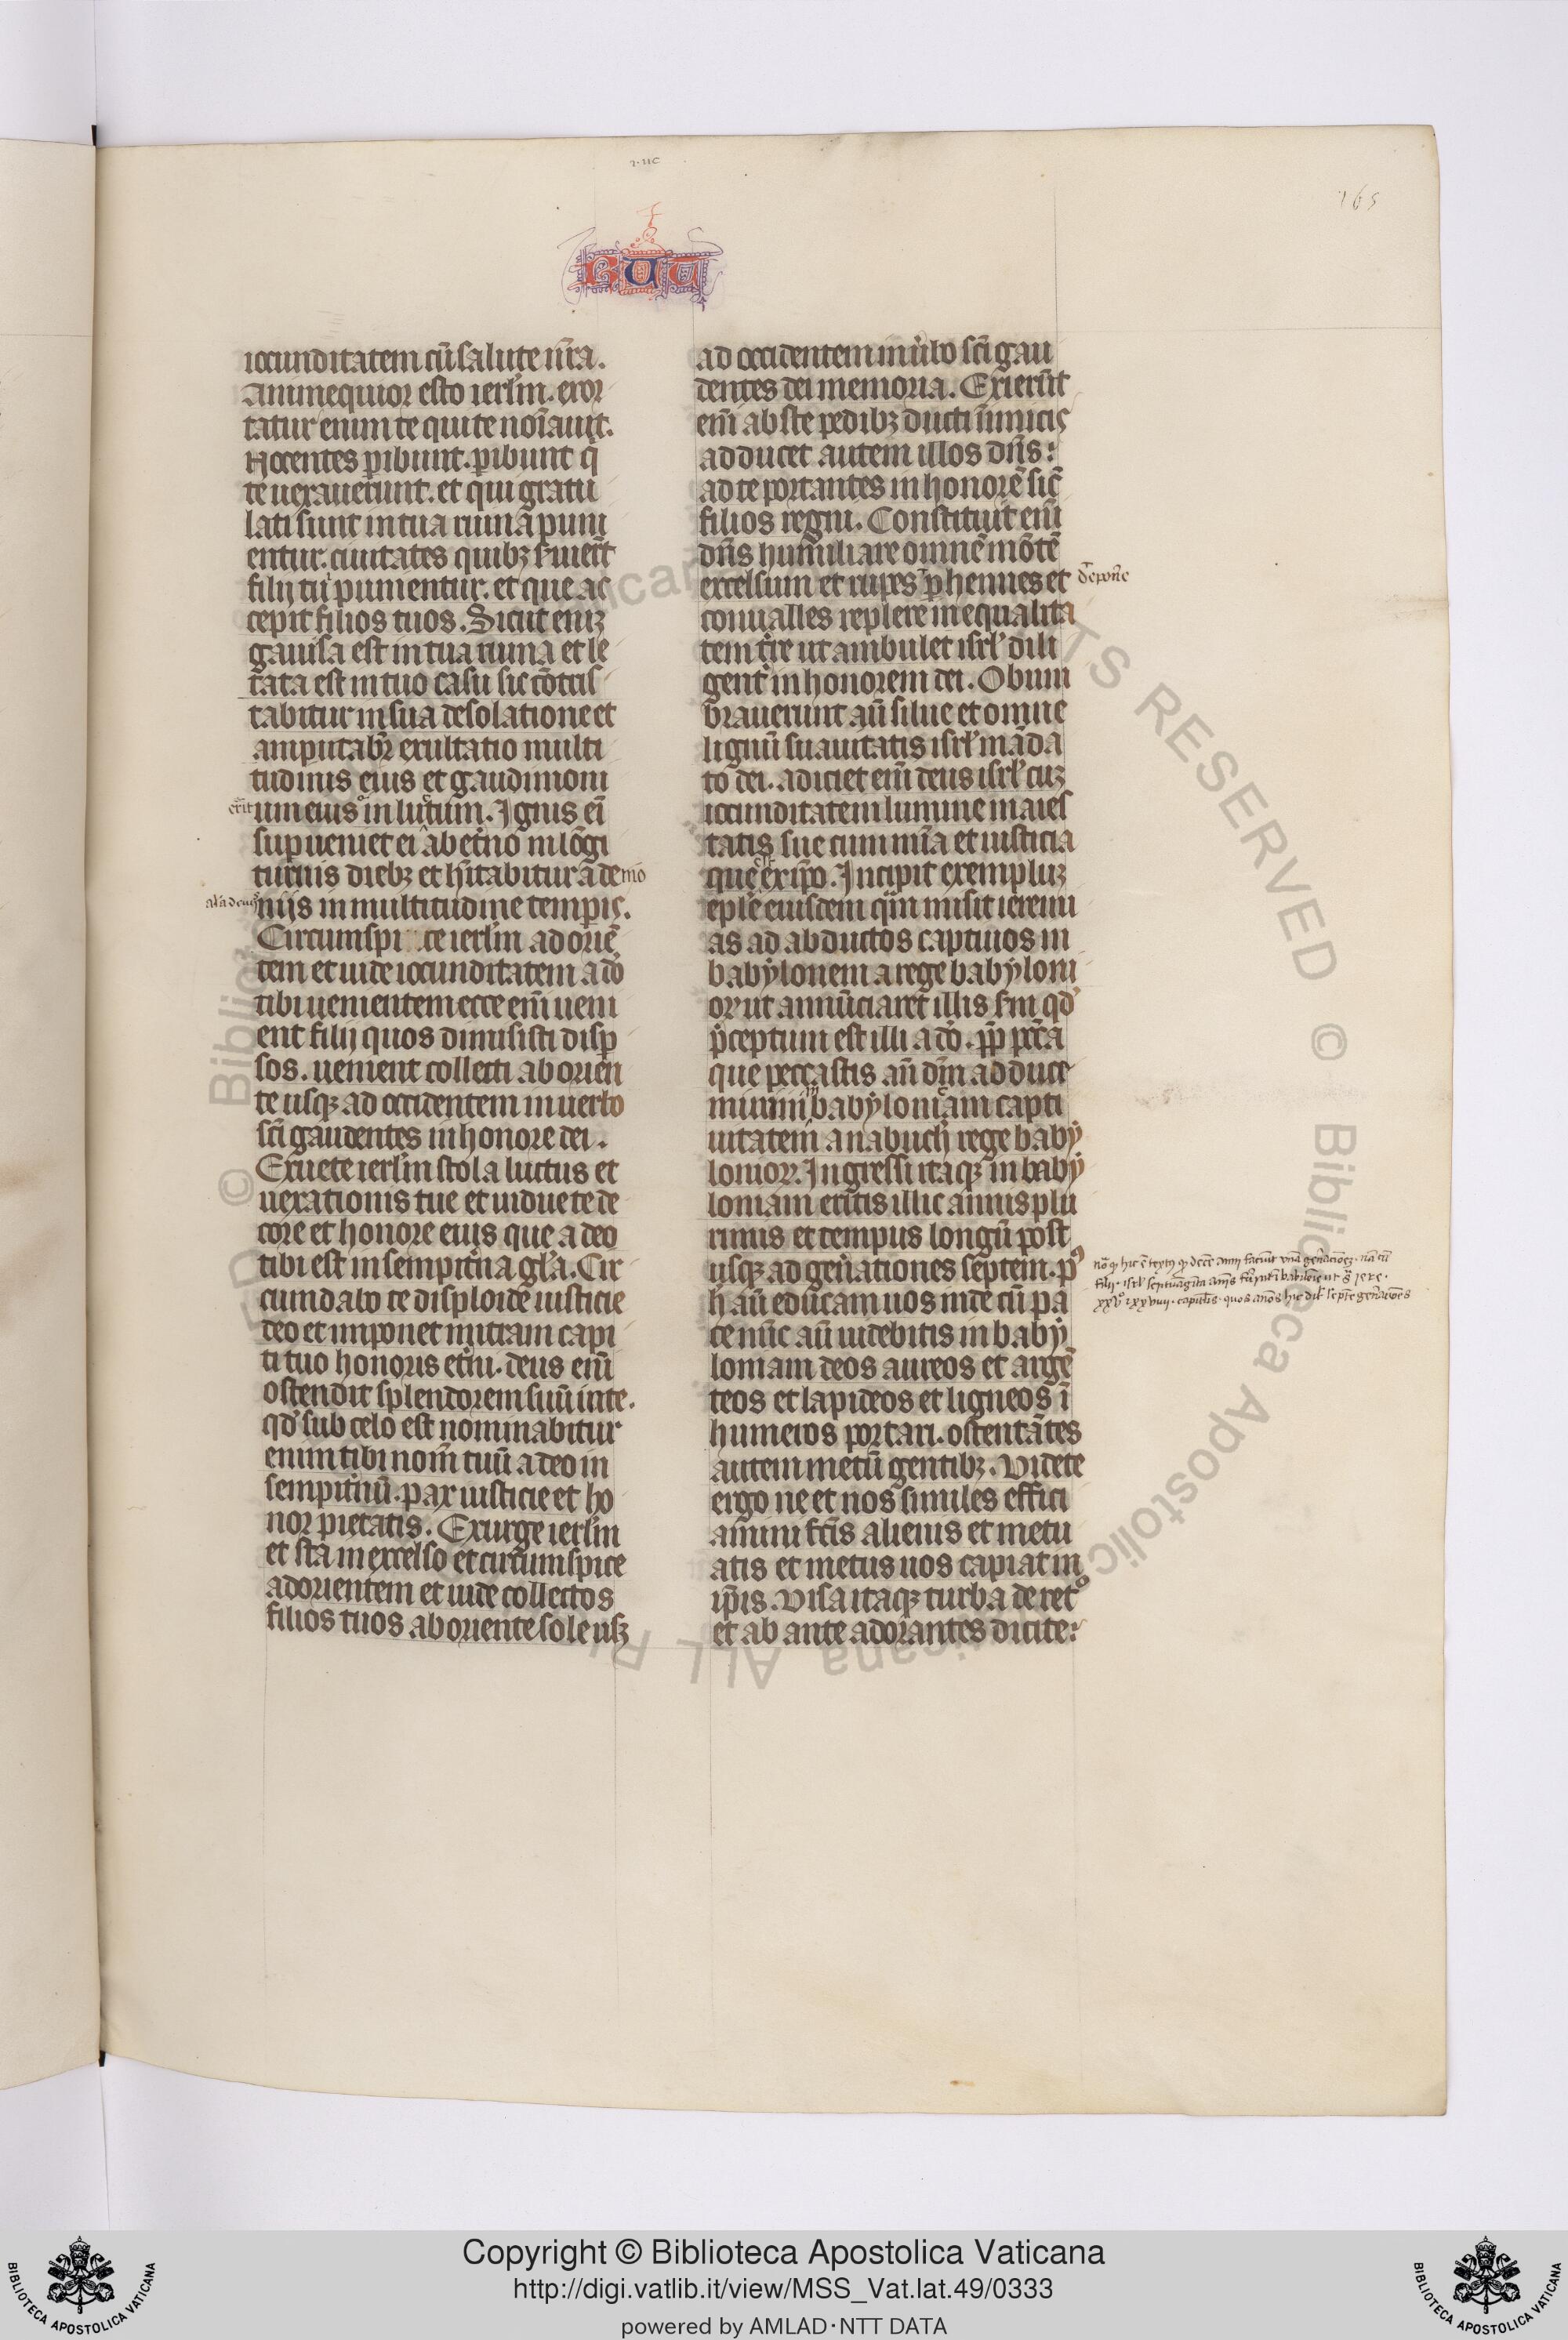 165
RUT
iocunditatem cū salute nr̄a.
Animequior esto ierlm̄. exor
tatur enim te qui te noīauit.
Nocentes ꝑibunt. ꝑibunt q̄
te uexauerunt. et qui gratu
lati sunt in tua ruina puni
entur. ciuitates quibꝫ seruierūt
filij tui punientur. et que ac
cepit filios tuos. Sicut eniꝫ
gauisa est in tua ruina et le
tata est in tuo casu sic cōtris
tabitur in sua desolatione et
amputabr̄ exultatio multi
tudinis eius et gaudimoni
um eius in luctum. Ignis ei
erit
suꝑueniet ei ab et̄no in lōgi
turnis diebꝫ et hītabitur a demo
nijs in multitudine temꝑis.
Circumspi ce ierlm̄ ad oriē
tem et uide iocunditatem a dō
tibi uenientem ecce em̄ ueni
ent filij quos dimisisti disꝑ
sos. uenient collecti ab orien
te usqꝫ ad occidentem in uerbo
scī gaudentes in honore dei.
Exuete ierlm̄ stola luctus et
uexationis tue et indue te de
core et honore eius que a deo
tibi est in sempit̄na gl̄a. Cir
cumdabo te disploide iusticie
deo et imponet mitram capi
ti tuo honoris et̄ni. deus em̄
ostendit splendorem suū in te.
qd̓ sub celo est nominabitur
enim tibi nom̄ tuū a deo in
sempit̄nū. pax iusticie et ho
nor pietatis. Exurge ierlm̄
et sta in excelso et circumspice
ad orientem et uide collectos
filios tuos ab oriente sole usꝫ
ad occidentem in u̓bo scī gau
dentes dei memoria. Exierūt
em̄ abs te pedibꝫ ducti inimicis
adducet autem illos dn̄s:
ad te portantes in honorē sic̄
filios regni. Constituit em̄
dn̄s humiliare omnē mōtē
excelsum et rupes ꝑhennes et
conualles replere in equalita
tem t̄re ut ambulet isrl̓ dili
gent̓ in honorem dei. Obum
brauerunt aū silue et omne
lignū suauitatis isrl̓ māda
to dei. adiciet em̄ deus isrl̓ cuꝫ
iocunditatem lumine maies
tatis sue cum mīa et iusticia
que est ex ip̄o. Incipit exempluꝫ
eple eiusdem qm̄ misit ieremi
as ad abductos captiuos in
babylonem a rege babyloni
oꝝ ut annūciaret illis sm̄ qd̓
p̄ceptum est illi a dō. ꝓp̄ pcc̄a
que peccastis aū dm̄ adduce
mini in babyloniam capti
uitatem a nabuch̓ rege baby
lonioꝝ. Ingressi itaqꝫ in baby
loniam eritis illic annis plu
rimis et tempus longū post
usqꝫ ad gen̓ationes septem. p⁹
h̄ aū educam uos inde cū pa
ce nūc aū uidebitis in baby
loniam deos aureos et argē
teos et lapideos et ligneos ī
humeros portari. ostentātes
autem metū gentibꝫ. Videte
ergo ne et nos similes effici
amini fc̄is alienis et metu
atis et metus uos capiat in
ip̄is. Visa itaqꝫ turba de ret̊
et ab ante adorantes dicite:
Copyright © Biblioteca Apostolica Vaticana
http://digi.vatlib.it/view/MSS_Vat.lat.49/0333
powered by AMLAD·NTT DATA
BIBLIOTECA APOSTOLICA VATICANA
BIBLIOTECA APOSTOLICA VATICANA